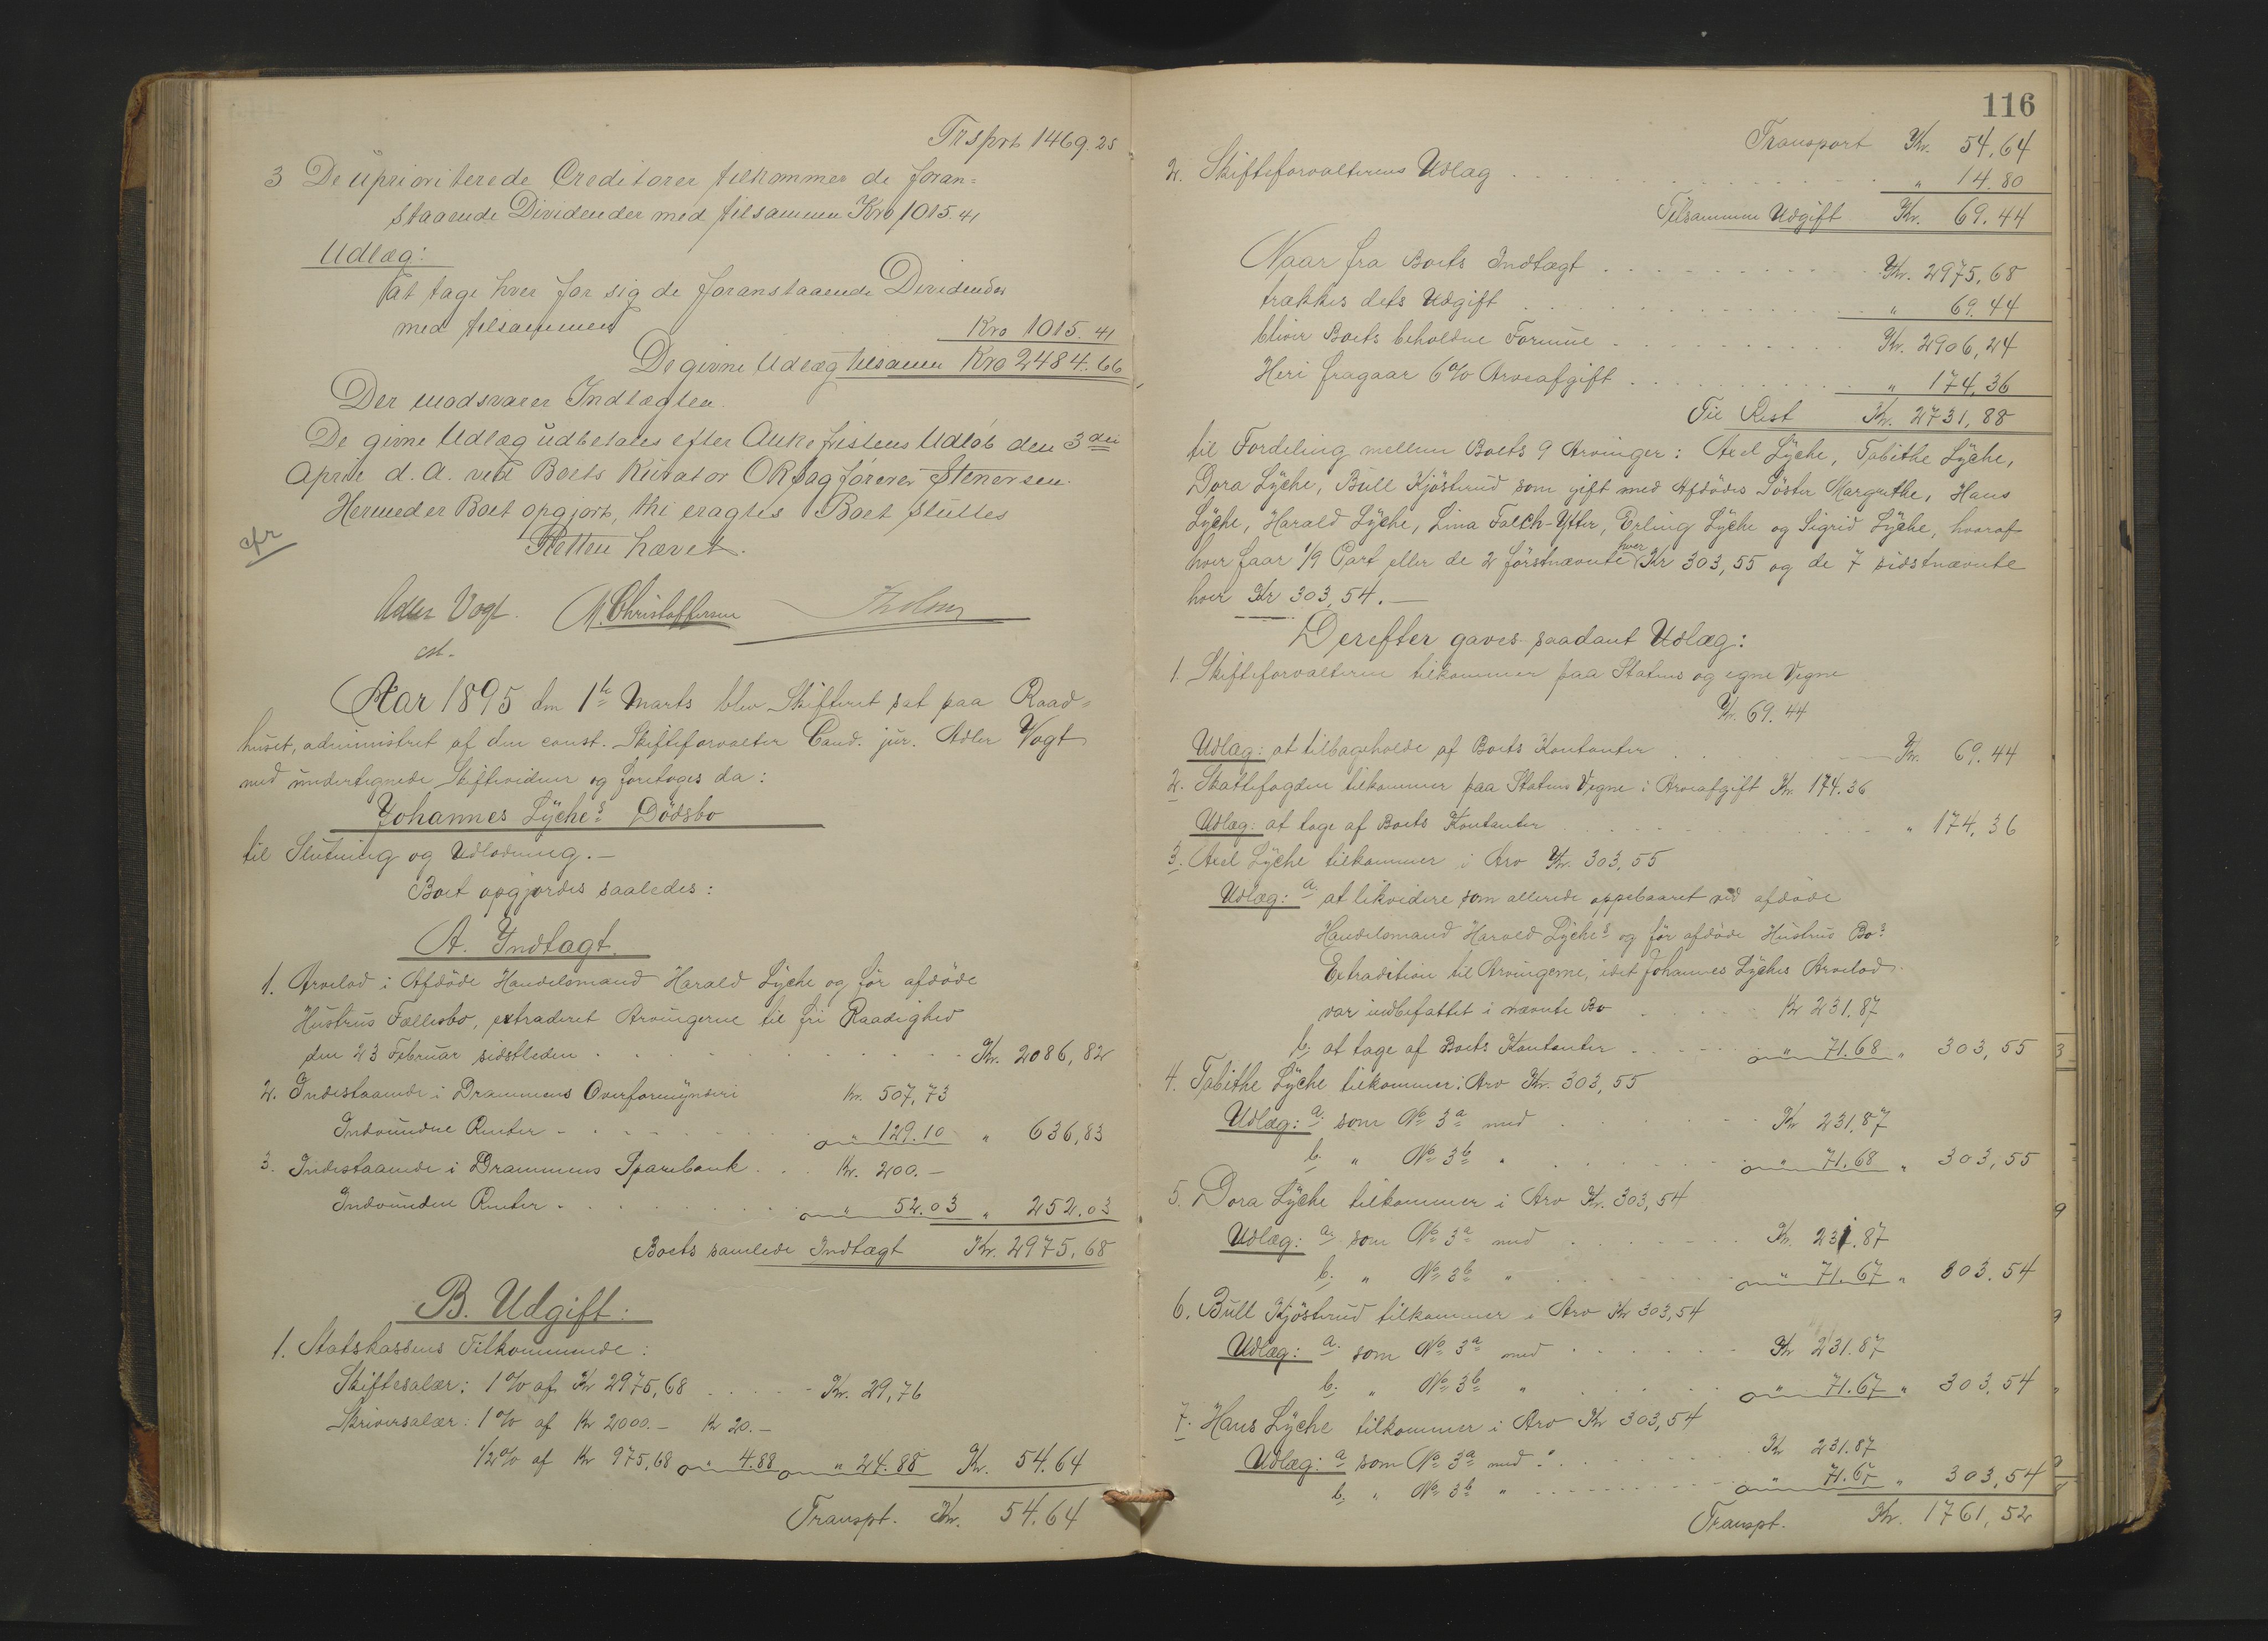 Trsprt 1469.25
3 De uprioriterede Creditorer tilkommer de foran=
staaende Dividender med tilsammen Kro 1015.41
Udlæg:
at tage hver for sig de foranstaaende Dividender
med tilsammen Kro 1015.41
De givne Udlæg tilsamen Kro 2484.66
Der modsvarer Indtægten.
De givne Udlæg udbetales efter Ankefristens Udløb den 3die
April d. A. ved Boets Kurator ORsagfører Stenersen.
Hermed er Boet opgjort, thi eragtes Boet sluttes
Retten hævet.
cfr
Adler Vogt. M. Christoffersen
cst.
Aar 1895 den 1te Marts blev Skifteret sat paa Raad=
huset, administret af den const. Skifteforvalter Cand. jur. Adler Vogt
med undertegnede Skiftevidner og foretoges da:
Johannes Lÿche's Dödsbo
til Slutning og Udlodning.—
Boet opgjordes saaledes:
A. Indtægt.
1. Arvelod i Afdöde Handelsmand Harald Lÿche og för afdöde
Hustrus Fællesbo, extraderet Arvingerne til fri Raadighed
den 23 Februar sidstleden . . . Kr. 2086,82
2. Indestaaende i Drammens Overformynderi Kr. 507,73
Indvundne Renter - . . . " 129.10 " 636,83
3. Indestaaende i Drammens Sparebank . . . Kr. 200.—
Indvundne Renter . . . " 52.03 " 252.03
Boets samlede Indtægt Kr. 2975,68
B. Udgift:
1. Statskassens Tilkommende:
Skiftesalær: 1% af Kr 2975,68 . . . Kr. 29,76
Skriversalær: 1% af Kr 2000.— Kr 20.—
1/2% af Kr 975,68 " 4.88 " 24.88 Kr. 54.64
Transpt. Kr. 54.64
116
Transport Kr. 54,64
2. Skifteforvalterens Udlæg . . . " 14.80
Tilsammen Udgift Kr. 69.44
Naar fra Boets Indtægt . . . Kr. 2975,68
trækkes dets Udgift . . . " 69.44
bliver Boets beholdne Formue . . . Kr. 2906,24
Heri fragaar 6% Arveafgift . . . " 174,36
Til Rest Kr. 2731,88
til Fordeling mellem Boets 9 Arvinger: Axel Lÿche, Tabithe Lÿche,
Dora Lÿche, Bull Kjösterud som gift med Afdödes Söster Margrethe, Hans
Lÿche, Harald Lÿche, Lina Falch-Ytter, Erling Lÿche og Sigrid Lÿche, hvoraf
hver faar 1/9 Part eller de 2 förstnævnte hver Kr 303,55 og de 7 sidstnævnte
hver Kr 303,54.—
Derefter gaves saadant Udlæg:
1. Skifteforvalteren tilkommer paa Statens og egne Vegne
Kr. 69.44
Udlæg: at tilbageholde af Boets Kontanter . . . Kr. 69.44
2. Skattefogden tilkommer paa Statens Vegne i Arveafgift Kr 174.36
Udlæg: at tage af Boets Kontanter . . . " 174,36
3. Axel Lÿche tilkommer i Arv Kr. 303,55
Udlæg: a. at likvidere som allerede oppebaaret ved afdöde
Handelsmand Harald Lÿche's og för afdöde Hustrus Bo's
Extradition til Arvingerne, idet Johannes Lÿches Arvelod
var indbefattet i nævnte Bo . . . Kr 231,87
b. at tage af Boets Kontanter . . . " 71.68 " 303,55
4. Tabithe Lÿche tilkommer i Arv Kr. 303,55
Udlæg: a. som No 3a med . . . Kr 231,87
b. " No 3b " . . . " 71.68 " 303,55
5. Dora Lÿche tilkommer i Arv Kr. 303,54
Udlæg: a. som No 3a med . . . Kr. 231.87
b. " No 3b " . . . " 71.67 " 303.54
6. Bull Kjösterud tilkommer i Arv Kr 303,54
Udlæg: a. som No 3a med . . . Kr 231.87
b. " No 3b " . . . " 71.67 " 303,54
7. Hans Lÿche tilkommer i Arv Kr 303,54
Udlæg: a som No 3a med . . . Kr 231.87
b. " No 3b " . . . " 71.67 " 303,54
Transpt. Kr. 1761,52